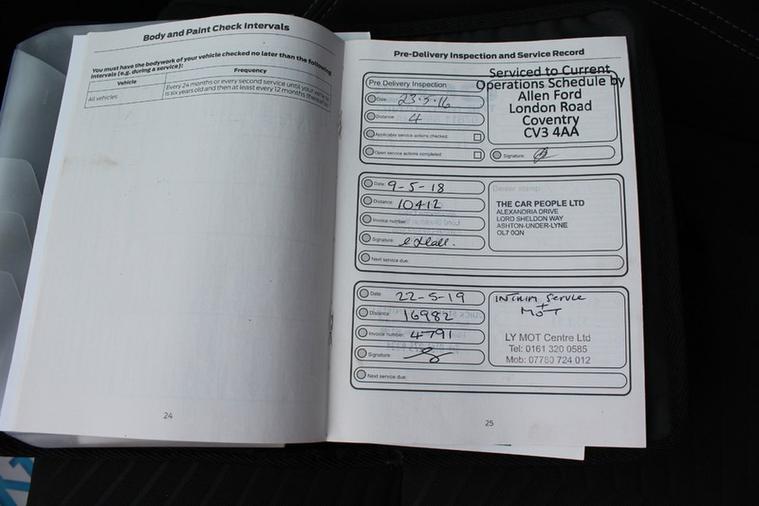 Body and Paint Check Intervals
You must have the bodywork of your vehicle checked no later than the following
intervals (e.g. during a service):
Vehicle Frequency
All vehicles
Every 24 months or every second service until your vehicle
is six years old and then at least every 12 months
24
Pre-Delivery Inspection and Service Record
Pre Delivery Inspection
Date: 23-5-16
Distance: 4
Applicable service actions checked:
Open service actions completed:
Serviced to Current
Operations Schedule by
Allen Ford
London Road
Coventry
CV3 4AA
Signature:
Date: 9-5-18
Distance: 10412
Invoice number:
Signature:
Next service due:
Dealer stamp:
THE CAR PEOPLE LTD
ALEXANDRIA DRIVE
LORD SHELDON WAY
ASHTON-UNDER-LYNE
OL7 0QN
Date: 22-5-19
Distance: 16982
Invoice number: 4791
Signature:
Next service due:
Interim Service
+
MOT
LY MOT Centre Ltd
Tel: 0161 320 0585
Mob: 07780 724 012
25